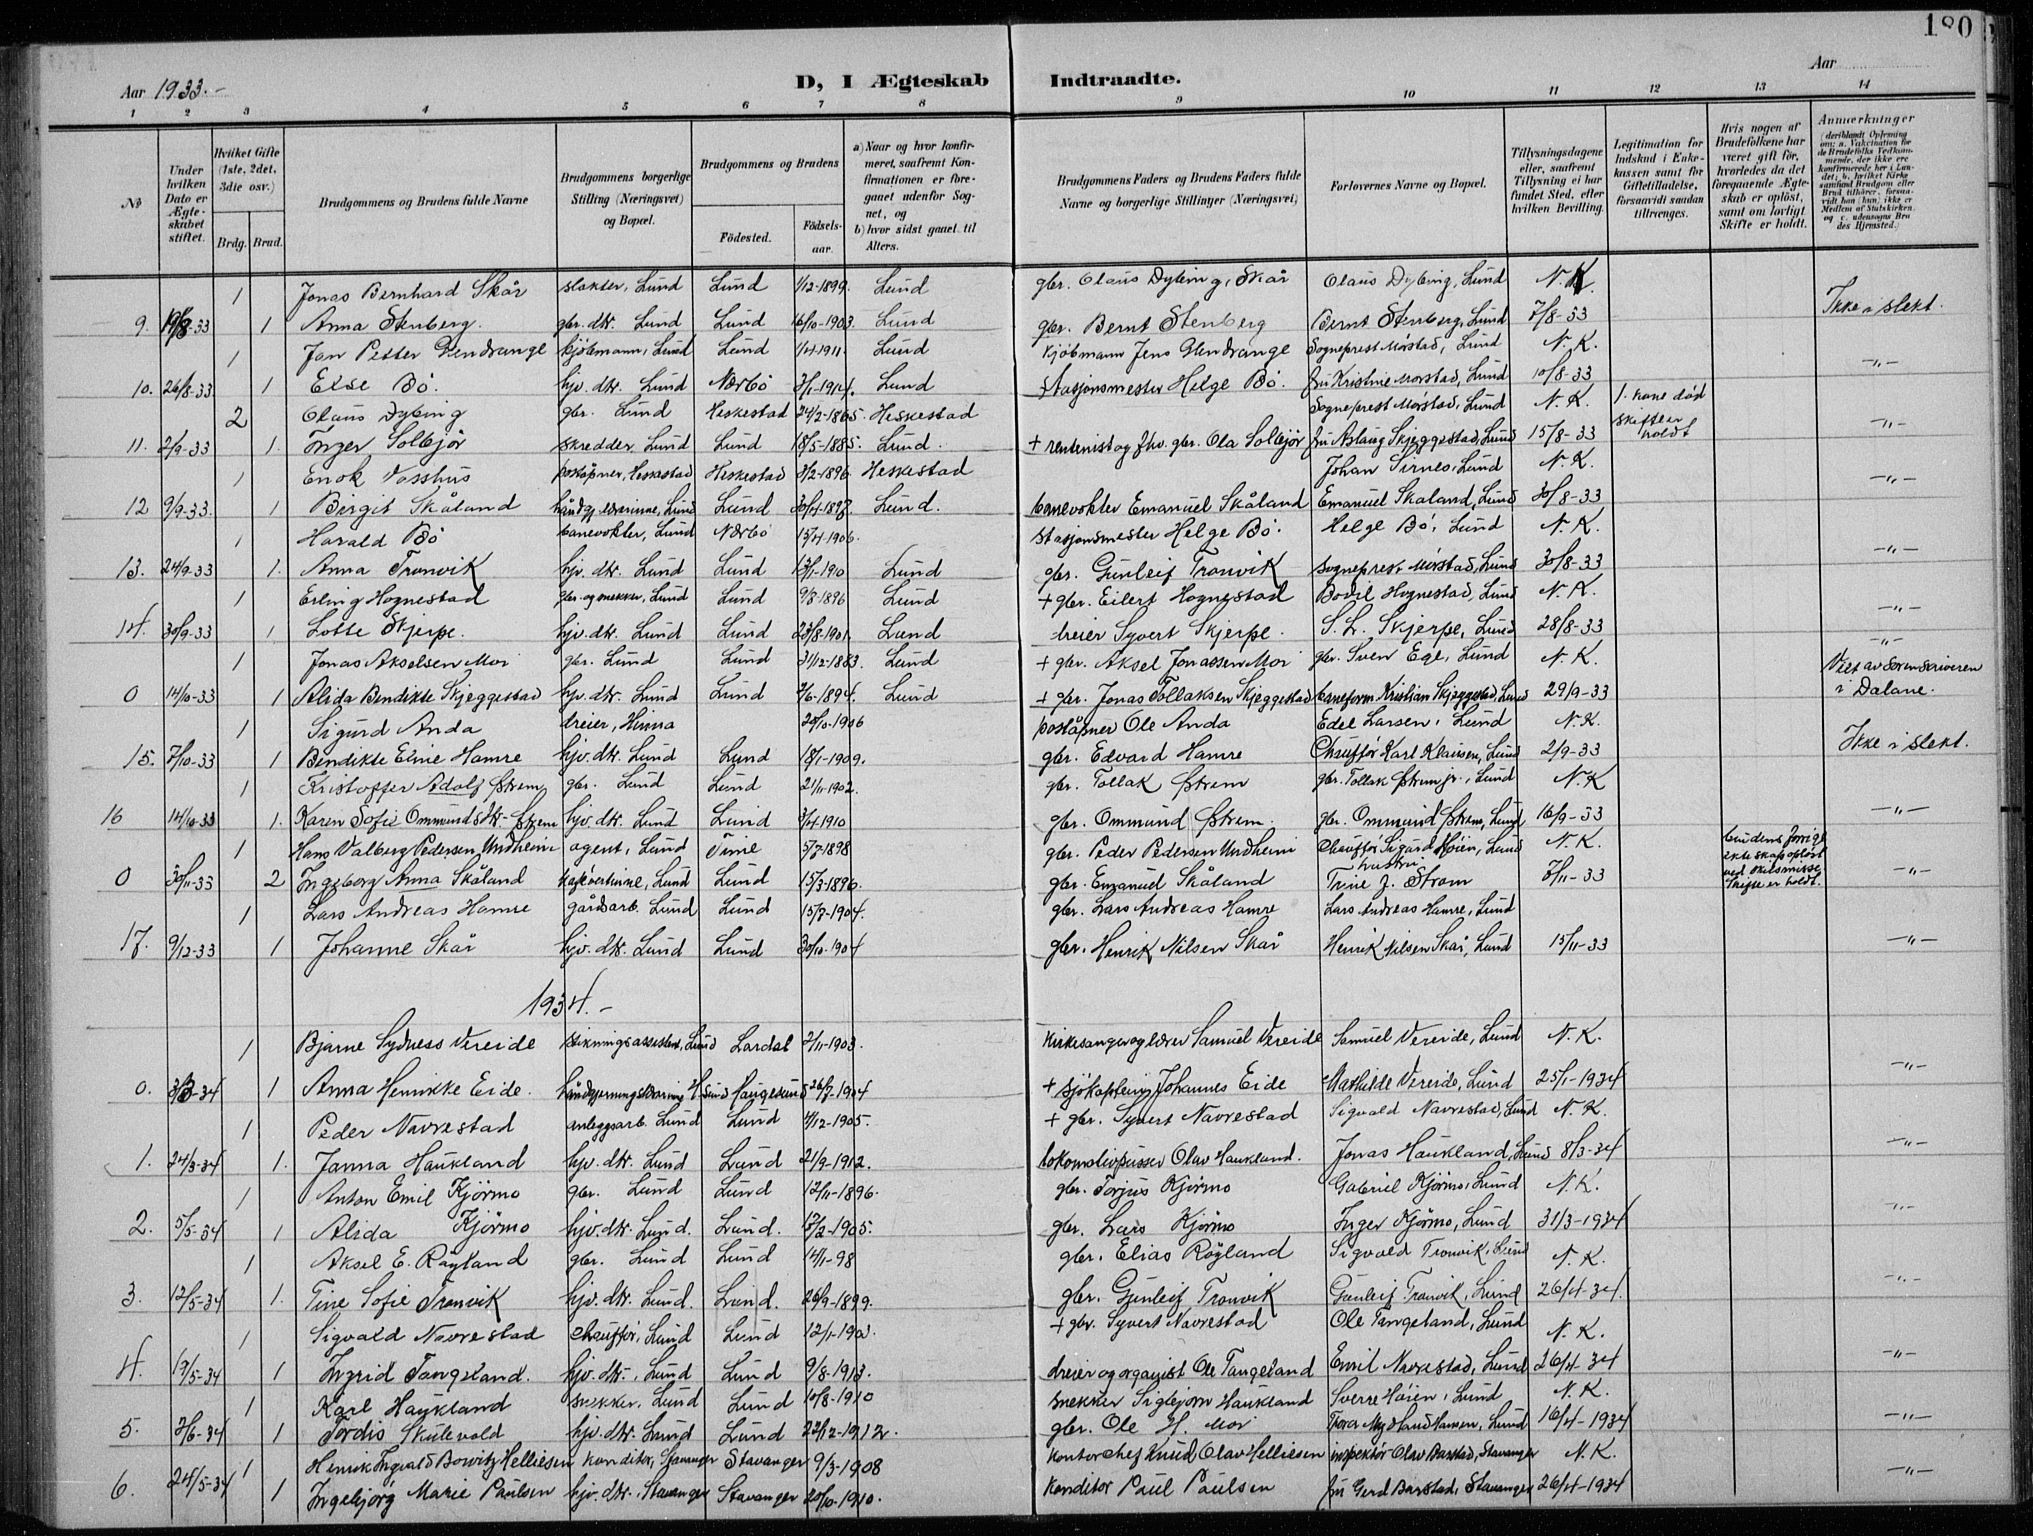 180
Aar 1933.-
D, I Ægteskab Indtraadte.
Aar
1 2 3 4 5 6 7 8 9 10 11 12 13 14
No
Under hvilken Dato er Ægteskabet stiftet.
Hvilket Gifte (1ste, 2det, 3die osv.)
Brdg. Brud.
Brudgommens og Brudens fulde Navne
Brudgommens borgerlige Stilling (Næringsvei) og Bopæl.
Brudgommens og Brudens
Fødested.
Fødselsaar.
a) Naar og hvor konfirmeret, saafremt Konfirmationen er foregaaet udenfor Sognet, og
b) hvor sidst gaaet til Alters.
Brudgommens Faders og Brudens Faders fulde Navne og borgerlige Stillinger (Næringsvei)
Forlovernes Navne og Bopæl.
Tillysningsdagene eller, saafremt Tillysning ei har fundet Sted, efter hvilken Bevilling.
Legitimation for Indskud i Enkekassen samt for Giftetilladelse, forsaavidt saadan tiltrænges.
Hvis nogen af Brudefolkene har været gift før, hvorledes da det foregaaende Ægteskab er opløst, samt om lovligt Skifte er holdt.
Anmærkninger
1 Jonas Bernhard Skår slakter, Lund Lund 1/12-1899. Lund gbr. Olaus Dybing, Skår Olaus Dybing, Lund N.K.
9. 19/8-33 1 Anna Stenberg. gbr. dtr. Lund Lund 16/10-1903. Lund gbr. Bernt Stenberg Bernt Stenberg, Lund 7/8-33 Ikke i slekt.
1 Jan Petter Glendrange kjøbmann, Lund Lund 1/4-1911. Lund Kjøbmann Jens Glendrange Sogneprest Mørstad, Lund N.K.
10. 26/8-33 1 Else Bö. hjv. dtr. Lund Nærbö 3/1-1914. Lund Stasjonsmester Helge Bö. fru Kristine Mørstad, Lund 10/8-33 -"-
2 Olaus Dybing gbr. Lund Heskestad 24/2-1865. Heskestad Sogneprest Mørstad, Lund N.K. 1. kone död
11. 2/9-33 1. Inger Solbjør skredder, Lund Lund 18/5-1885. Lund. + rentenist og fhv. gbr. Ola Solbjør fru Aslaug Skjeggestad, Lund 15/8-33 skifte er holdt -"-
1 Enok Vasshus poståpner, Heskestad Heskestad 3/2-1896 Heskestad Johan Sirnes, Lund N.K.
12 9/9-33. 1 Birgit Skåland håndgj. lærerinne, Lund Lund 30/4-1897. Lund. banevokter Emanuel Skåland Emanuel Skåland, Lund 30/8-33 -"-
1 Harald Bö banevokter, Lund Nærbö 15/4-1906. stasjonsmester Helge Bö. Helge Bö, Lund N.K.
13. 24/9-33 1. Anna Tronvik hjv. dtr. Lund Lund 13/1-1910 Lund gbr. Gunleif Tronvik sogneprest Mørstad, Lund 30/8-33 -"-
1 Erling Hognestad gbr. og snekker, Lund Lund 9/3-1896 Lund + gbr. Eilert Hognestad Bodil Hognestad, Lund N.K.
14. 30/9-33 1 Lotte Skjerpe. hjv. dtr. Lund Lund 23/8-1901. Lund dreier Syvert Skjerpe. S. L. Skjerpe, Lund 28/8-33 -"-
1 Jonas Akselsen Moi gbr. Lund Lund 31/12-1883. Lund + gbr. Aksel Jonassen Moi gbr. Sven Ege, Lund N.K. -"-
0 14/10-33 1 Alida Bendikte Skjeggestad hjv. dtr. Lund Lund 2/6-1894. Lund + gbr. Jonas Tollaksen Skjeggestad baneform. Kristian Skjeggestad, Lund 29/9-33 Viet av Sorenskriveren i Dalane.
1 Sigurd Anda dreier, Hinna 20/10-1906 poståpner Ole Anda Edel Larsen, Lund N.K.
15. 7/10-33 1 Bendikte Eline Hamre hjv. dtr. Lund Lund 18/1-1909. gbr. Edvard Hamre Chauffør Karl Klausen, Lund 2/9-33 Ikke i slekt.
1 Kristoffer Adolf Østrem gbr. Lund Lund 21/11-1902. gbr. Tollak Østrem gbr. Tollak Østrem jr., Lund N.K
16 14/10-33 1. Karen Sofie Ommundsdtr. Østrem hjv. dtr. Lund Lund 3/4-1910 gbr. Ommund Østrem. gbr. Ommund Østrem, Lund 16/9-33 -"-
1 Hans Valberg Pedersen Undheim agent, Lund Time 5/7-1898 gbr. Peder Pedersen Undheim Chauffør Sigurd Høien, Lund N.K. brudens forrige
0 30/11-33 2 Ingeborg Anna Skåland kafévertinne, Lund Lund 15/3-1896. gbr. Emanuel Skåland hustru Trine J. Strøm 7/11-33 ekteskap opløst ved skilsmisse Skifte er holdt. -"-
1 Lars Andreas Hamre gårdsarb. Lund Lund 15/7-1904. gbr. Lars Andreas Hamre Lars Andreas Hamre, Lund
17. 9/12-33 1 Johanne Skår hjv. dtr. Lund Lund 30/10-1904 gbr. Henrik Nilsen Skår Henrik Nilsen Skår, Lund 15/11-33 -"-
1934.-
1 Bjarne Sydness Vereide stikningsassistent, Lund Lardal 2/11-1903. Kirkesanger og lærer Samuel Vereide Samuel Vereide, Lund N.K.
0. 3/3-34 1 Anna Henrikke Eide. Haugesund 26/7-1904 + sjökaptein Johannes Eide Mathilde Vereide, Lund 25/1-1934 -"-
1 Peder Navrestad anleggsarb. Lund Lund 4/12-1905. + gbr. Syvert Navrestad Sigvald Navrestad, Lund N.K.
1. 24/3-34 1. Janna Haukland hjv. dtr. Lund Lund 21/9-1912. lokomotivpusser Olav Haukland. Jonas Haukland, Lund 8/3-34 -"-
1 Anton Emil Kjörmo gbr. Lund Lund 12/11-1896. gbr. Torjus Kjörmo Gabriel Kjörmo, Lund N.K.
2. 5/5-34 1 Alida Kjörmo hjv. dtr. Lund. Lund. 17/2-1905. gbr. Lars Kjörmo Inger Kjörmo, Lund 31/3-1934 -"-
1 Aksel E. Röyland gbr. Lund Lund 14/1-98 gbr. Elias Röyland Sigvald Tronvik, Lund N.K.
3. 12/5-34 1. Tine Sofie Tronvik hjv. dtr. Lund. Lund. 26/9-1899. gbr. Gunleif Tronvik Gunleif Tronvik, Lund 26/4-34. -"-
1 Sigvald Navrestad Chauffør, Lund Lund + gbr. Syvert Navrestad Ole Tangeland, Lund N.K.
4. 19/5-34 1 Ingrid Tangeland. hjv. dtr., Lund Lund 9/8-1913. dreier og organist Ole Tangeland Emil Navrestad, Lund 26/4-34 -"-
1 Karl Haukland snekker, Lund Lund 10/8-1910 snekker Sigbjørn Haukland Sverre Høien, Lund N.K.
5. 2/6-34 1 Tordis Skulevold hjv. dtr. Lund Lund 22/12-1912. gbr. Ole H. Moi Thora Hansen, Lund 16/4-1934 -"-
1 Henrik Ingvald Bowitz Helliesen konditor, Stavanger Stavanger 9/3-1908 Kontorchef Knud Olav Helliesen inspektör Olav Barstad, Stavanger N.K.
6. 24/5-34 1 Ingebjorg Marie Paulsen hjv. dtr. Stavanger Stavanger 20/10-1910. Konditor Paul Paulsen fru Gerd Barstad, Stavanger 26/4-1934 -"-